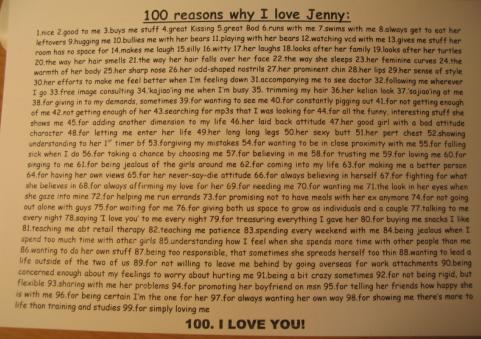 100 reasons why I love Jenny:
1.nice 2.good to me 3.buys me stuff 4.great Kissing 5.great Bod 6.runs with me 7.swims with me 8.always get to eat her
leftovers 9.hugging me 10.bullies me with her bears 11.playing with her bears 12.watching vcd with me 13.gives me stuff her
room has no space for 14.makes me laugh 15.silly 16.witty 17.her laughs 18.looks after her family 19.looks after her turtles
20.the way her hair smells 21.the way her hair falls over her face 22.the way she sleeps 23.her feminine curves 24.the
warmth of her body 25.her sharp nose 26.her odd-shaped nostrils 27.her prominent chin 28.her lips 29.her sense of style
30.her efforts to make me feel better when I'm feeling down 31.accompanying me to see doctor 32.following me wherever
I go 33.free image consulting 34.'kajiao'ing me when I'm busy 35. trimming my hair 36.her kelian look 37.'sajiao'ing at me
38.for giving in to my demands, sometimes 39.for wanting to see me 40.for constantly pigging out 41.for not getting enough
of me 42.not getting enough of her 43.searching for mp3s that I was looking for 44.for all the funny, interesting stuff she
shows me 45.for adding another dimension to my life 46.her laid back attitude 47.her good girl with a bad attitude
character 48.for letting me enter her life 49.her long long legs 50.her sexy butt 51.her pert chest 52.showing
understanding to her 1st timer bf 53.forgiving my mistakes 54.for wanting to be in close proximity with me 55.for falling
sick when I do 56.for taking a chance by choosing me 57.for believing in me 58.for trusting me 59.for loving me 60.for
singing to me 61.for being jealous of the girls around me 62.for coming into my life 63.for making me a better person
64.for having her own views 65.for her never-say-die attitude 66.for always believing in herself 67.for fighting for what
she believes in 68.for always affirming my love for her 69.for needing me 70.for wanting me 71.the look in her eyes when
she gaze into mine 72.for helping me run errands 73.for promising not to have meals with her ex anymore 74.for not going
out alone with guys 75.for waiting for me 76.for giving both us space to grow as individuals and a couple 77.talking to me
every night 78.saying 'I love you' to me every night 79.for treasuring everything I gave her 80.for buying me snacks I like
81.teaching me abt retail therapy 82.teaching me patience 83.spending every weekend with me 84.being jealous when I
spend too much time with other girls 85.understanding how I feel when she spends more time with other people than me
86.wanting to do her own stuff 87.being too responsible, that sometimes she spreads herself too thin 88.wanting to lead a
life outside of the two of us 89.for not willing to leave me behind by going overseas for work attachments 90.being
concerned enough about my feelings to worry about hurting me 91.being a bit crazy sometimes 92.for not being rigid, but
flexible 93.sharing with me her problems 94.for promoting her boyfriend on msn 95.for telling her friends how happy she
is with me 96.for being certain I'm the one for her 97.for always wanting her own way 98.for showing me there's more to
life than training and studies 99.for simply loving me
100. I LOVE YOU!